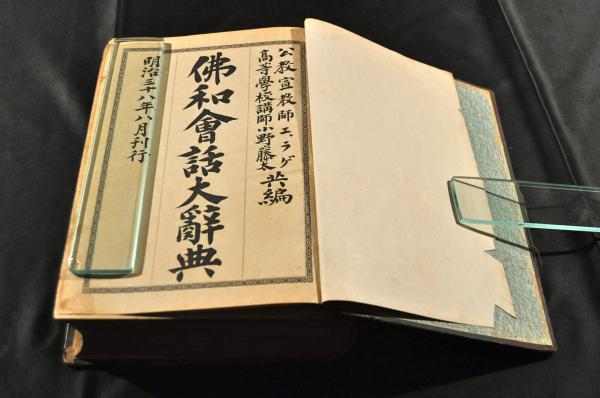 公教宣教師エ、ラゲ
高等學校講師小野藤太 共編
佛和會話大辭典
明治三十八年八月刊行